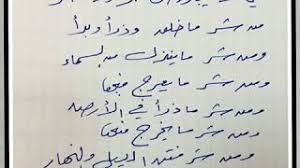 من شر ما خلق وذرأ وبرأ
ومن شر ما ينزل من السماء
ومن شر ما يعرج فيها
ومن شر ما ذرأ في الأرض
ومن شر ما يخرج منها
ومن شر فتن الليل والنهار